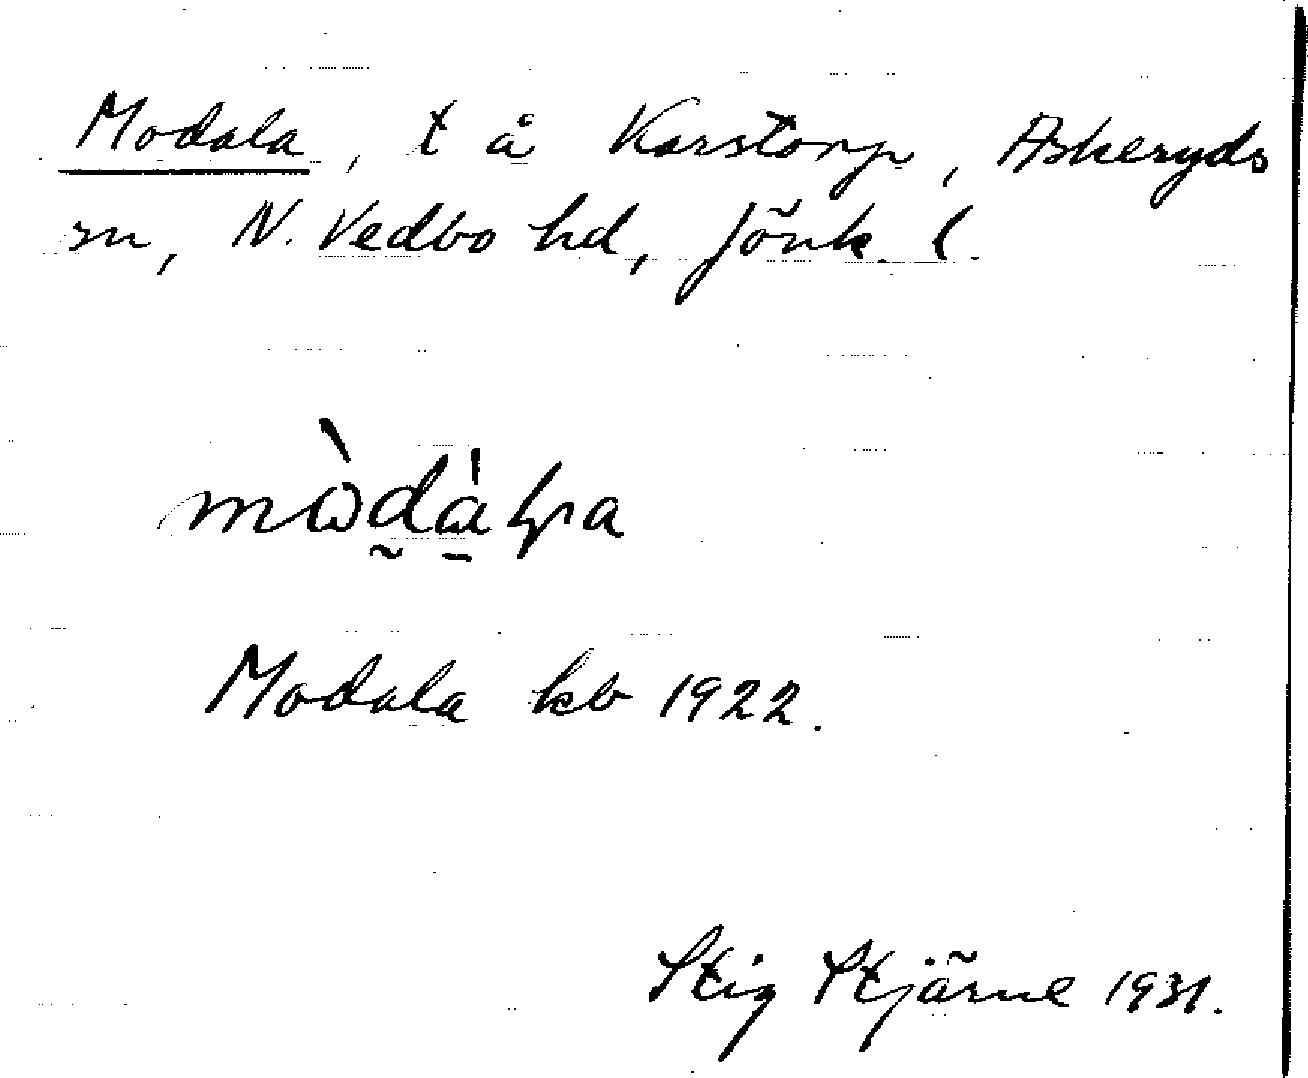 Modala, t å Karstorp, Askeryds
sn, N. Vedbo hd, Jönk. l.
Modala kb 1922.
Stig Stjärne 1931.